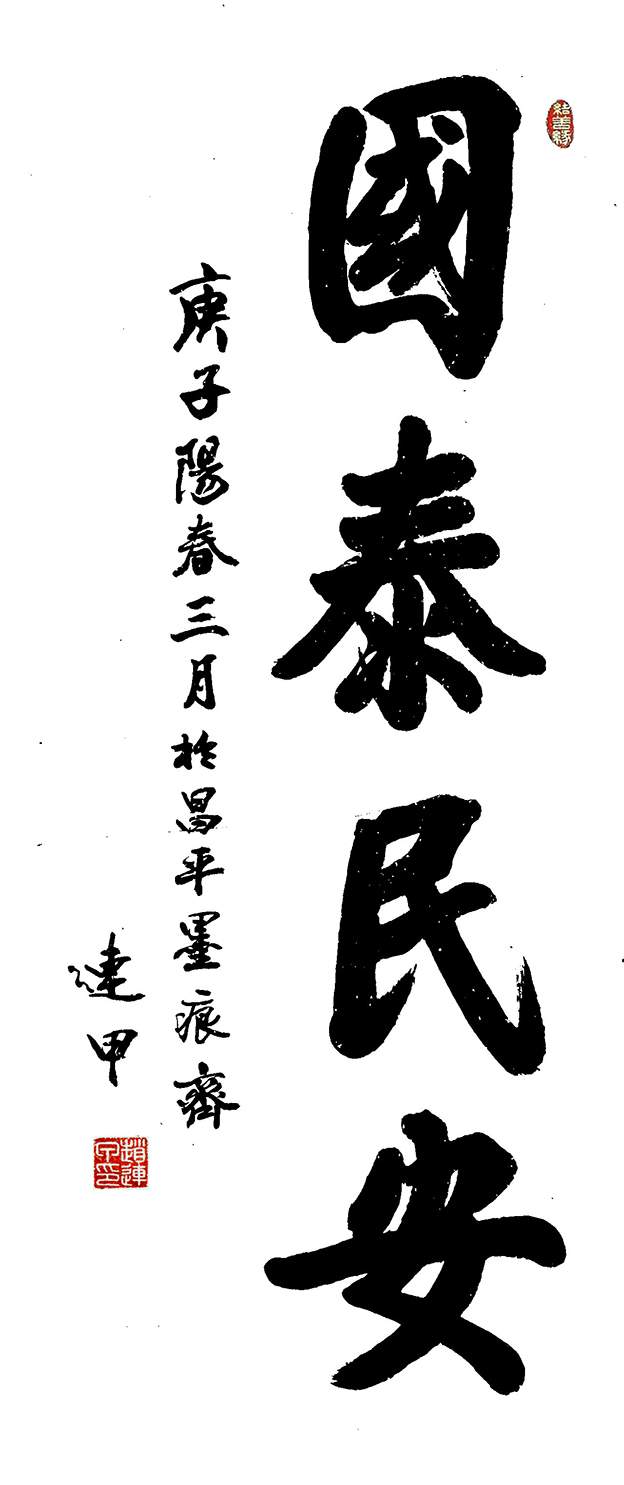 結善緣
國泰民安
庚子陽春三月於昌平墨痕齋
連甲
趙連甲印